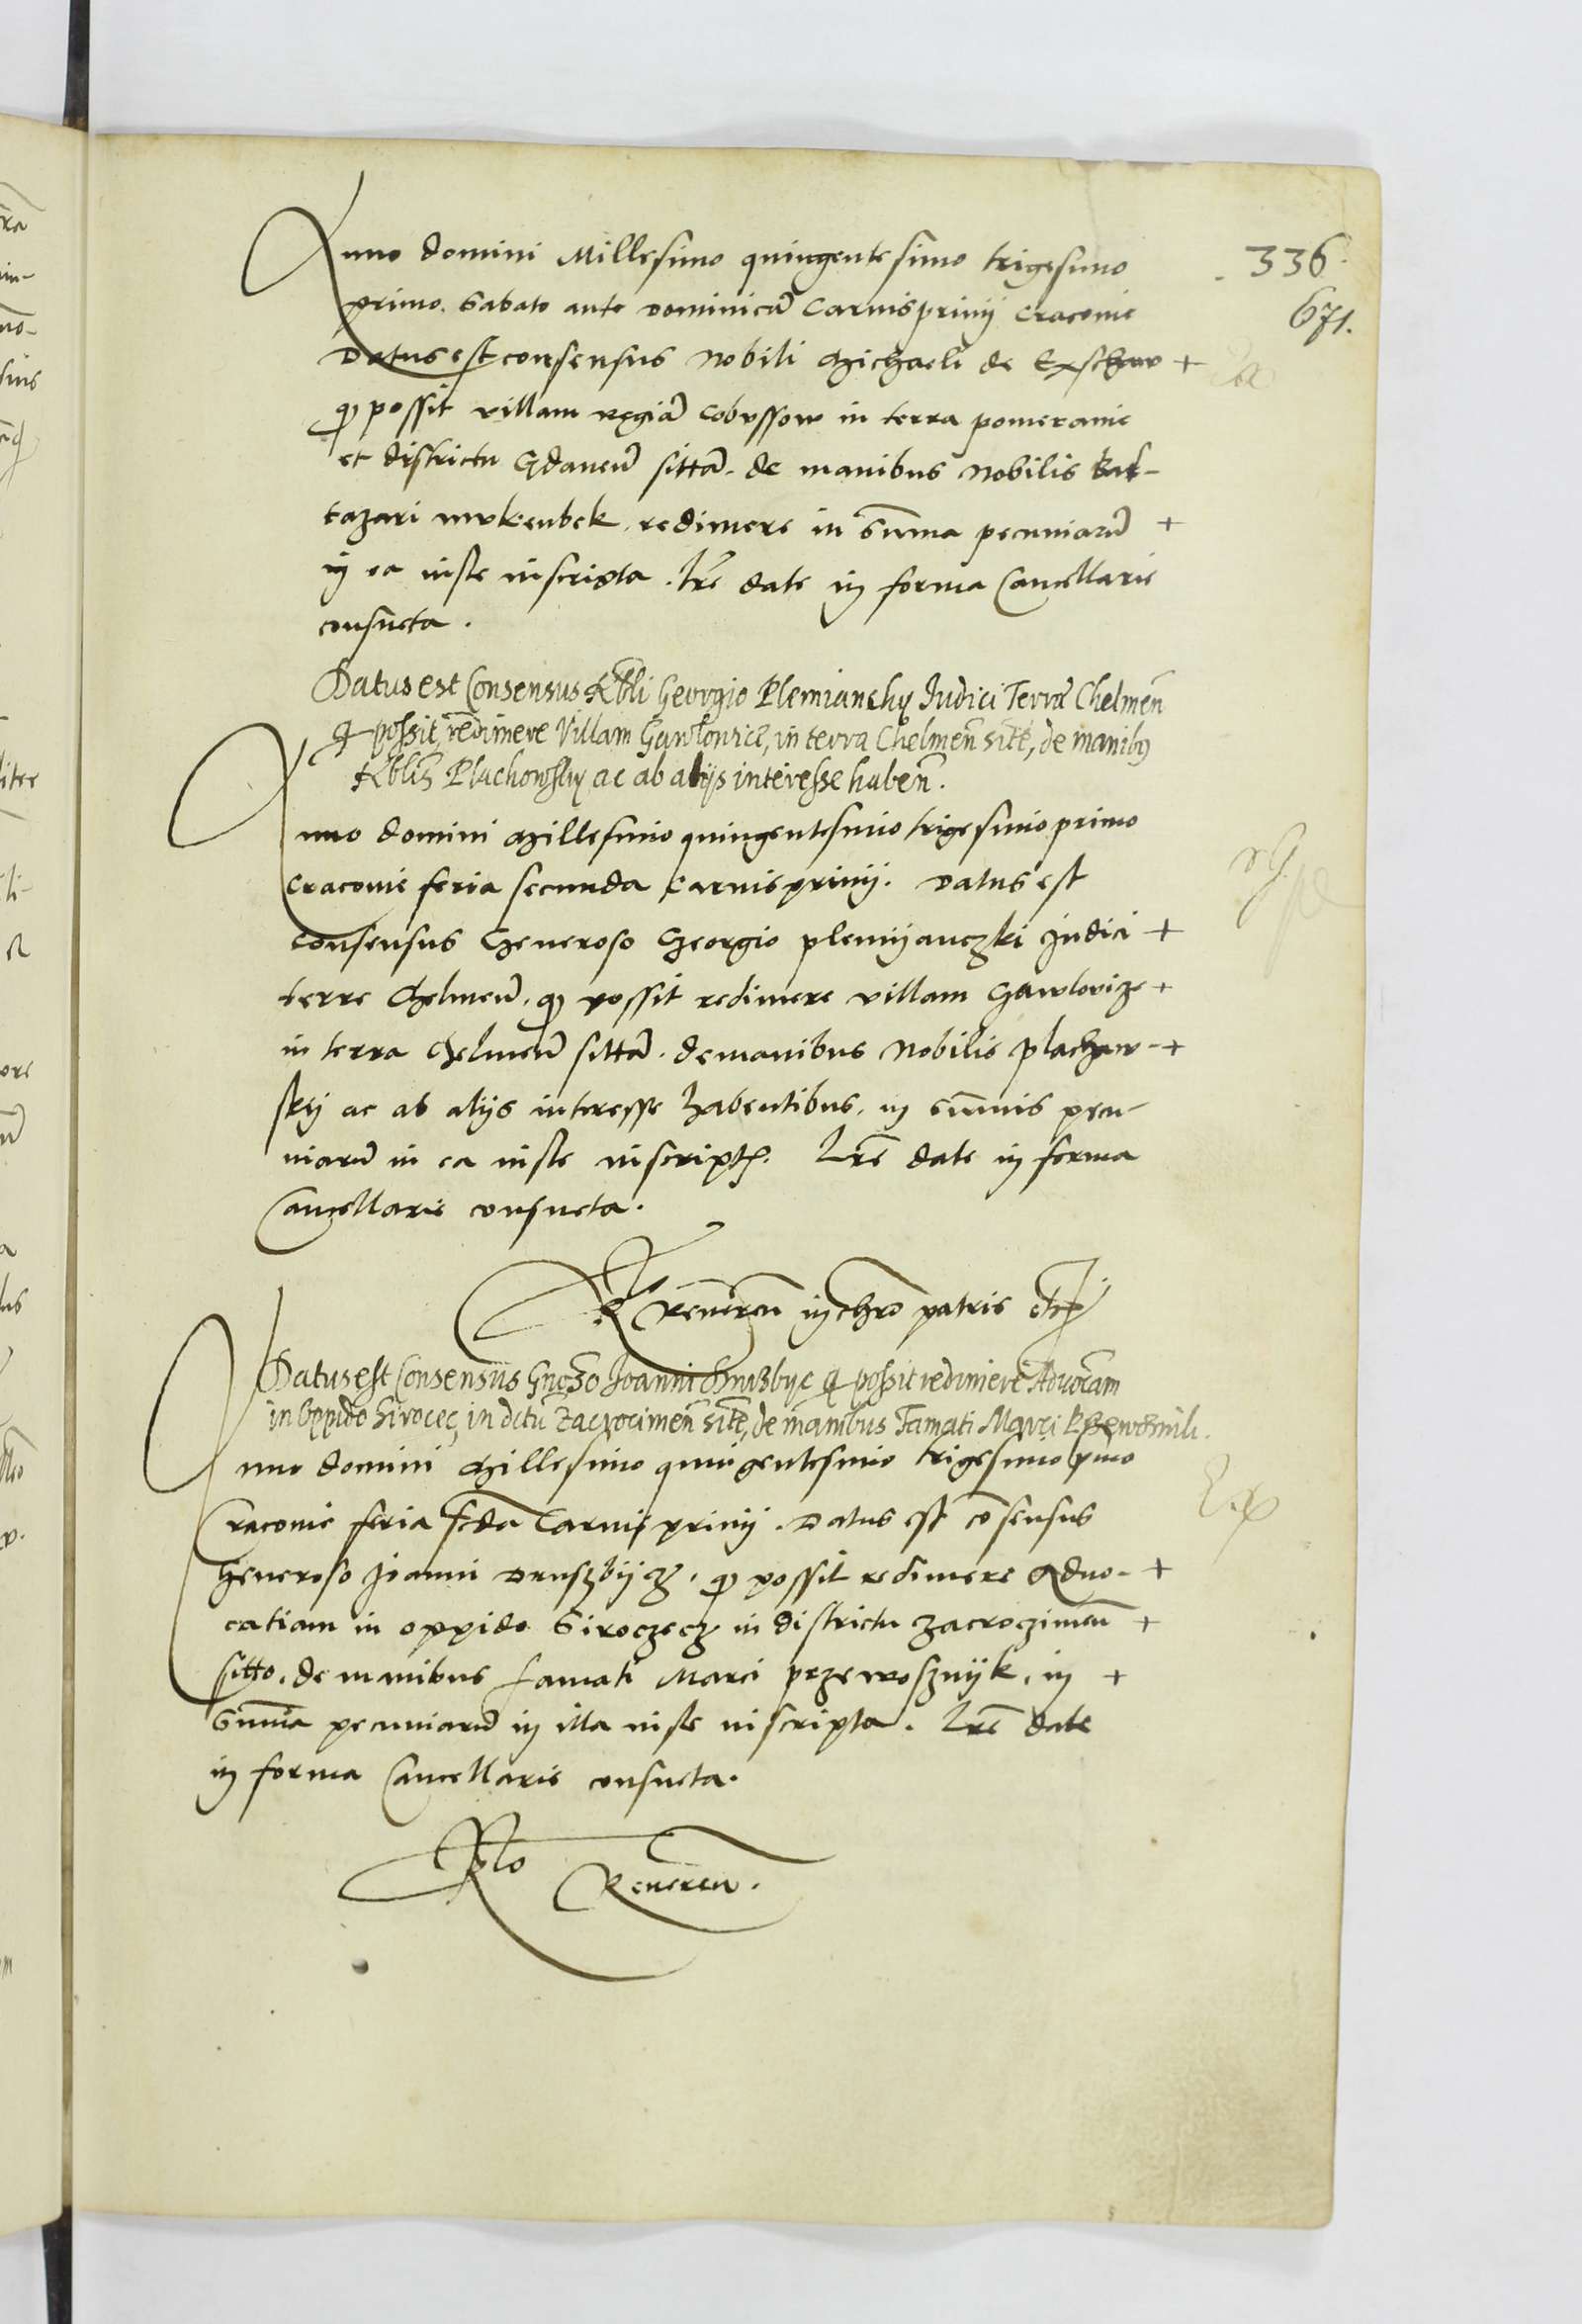 336
671.
Anno domini Millesimo quingentesimo trigesimo
primo. Sabato ante dominicā Carnisprivij Cracovie
Datus est consensus Nobili Michaeli de Exschaw +
qd possit villam regiā Cobussow in terra pomeranie
et districtu Gdanen̄ sittā. de manibus Nobilis Bal-
tazari redimere in sum̄a pecuniarū +
in ea iuste inscripta. Lr̄e date in forma Cancellarie
consueta.
Datus est Consensus Nbli Georgio Plemianchy Iudici Terræ Chelmen̄
qd possit redimere Villam Gawlovice, in terra Chelmen̄ sitē, de manibꝰ
Nblis Plachowsky ac ab alijs interesse haben̄.
Anno domini Millesimo quingentesimo trigesimo primo
Cracovie feria secunda Carnisprivij. Datus est
consensus Generoso Georgio plemijanczki Judici +
terre Chelmen̄. qd possit redimere villam Gawlovize +
in terra Chelmen̄ sittā. de manibus Nobilis plachaw- +
skij ac ab alijs interesse habentibus. in sum̄is pecu-
niarū in ea iuste inscriptis. Lr̄e date in forma
Cancellarie consueta.
Rlo Reveren̄ in chro patris etc
Datus est Consensus Gnoso Joanni Drusbyc qd possit redimere Advocām
in Oppido Sirocec, in dctu Zacrocimen̄ sitē, de manibus Famati Marci
Anno domini Millesimo quingentesimo trigesimo pmo
Cracovie feria scda Carnisprivij. Datus est cōsensus
Generoso Joanni Druszbijcz. qd possit redimere Advo- +
catiam in oppido Siroczecz in districtu Zacroczimen̄ +
sitto. de manibus famati Marci przewosznijk. in +
Sum̄a pecuniarū in illa iuste inscripta. Lr̄e date
in forma Cancellarie consueta.
Rlo Reveren.